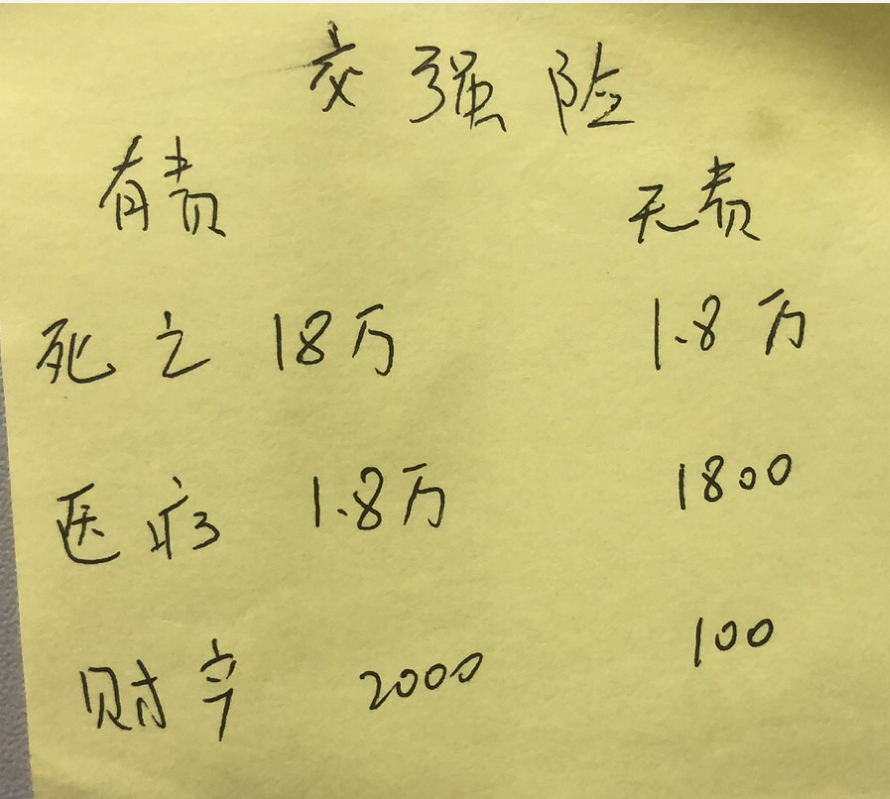 交强险
有责 无责
死亡 18万 1.8万
医疗 1.8万 1800
财产 2000 100